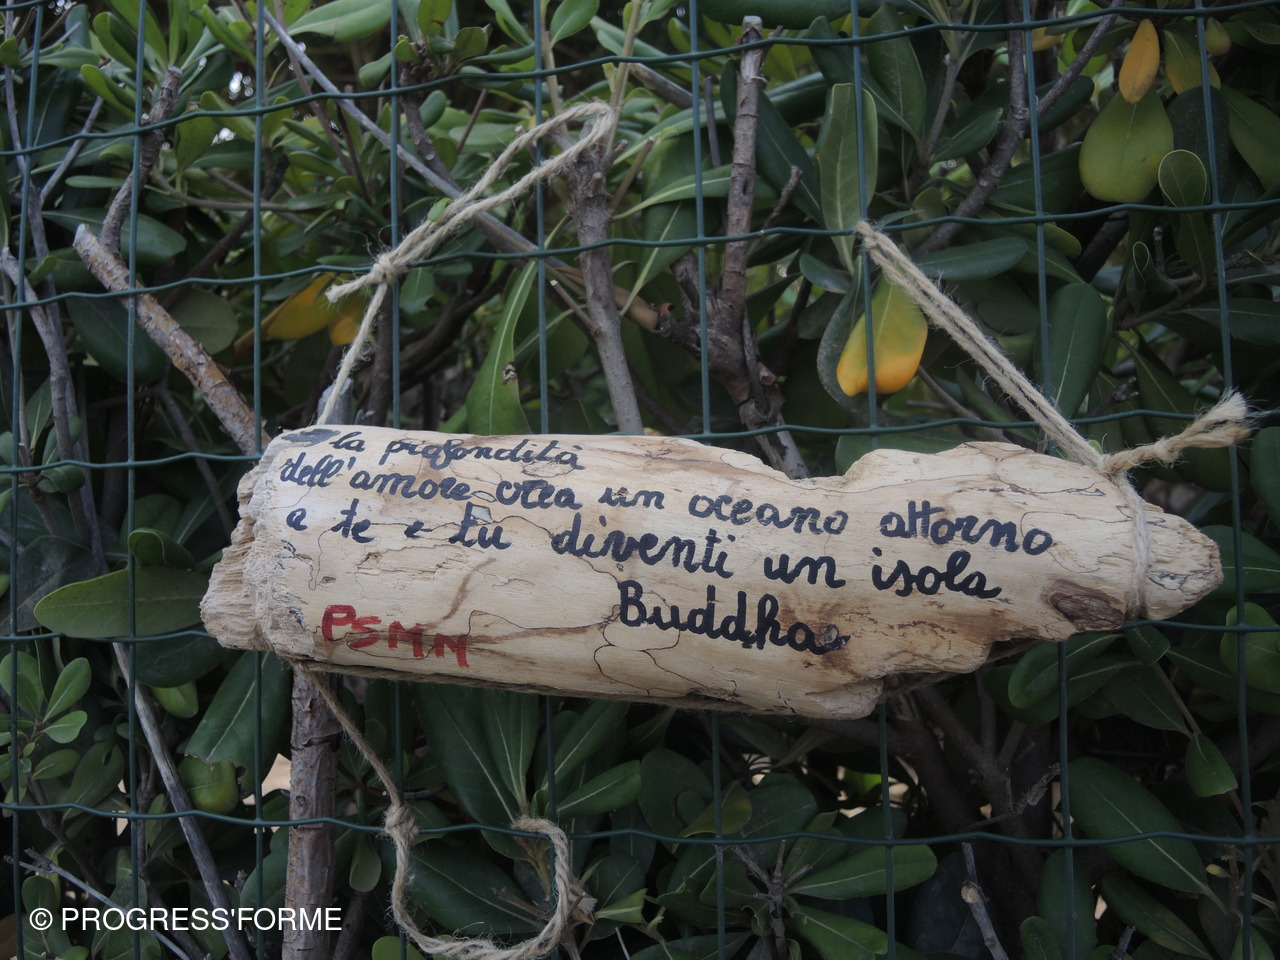 la profondità
dell'amore crea un oceano attorno
a te e tu diventi un isola
Buddha
PSMN
© PROGRESS'FORME